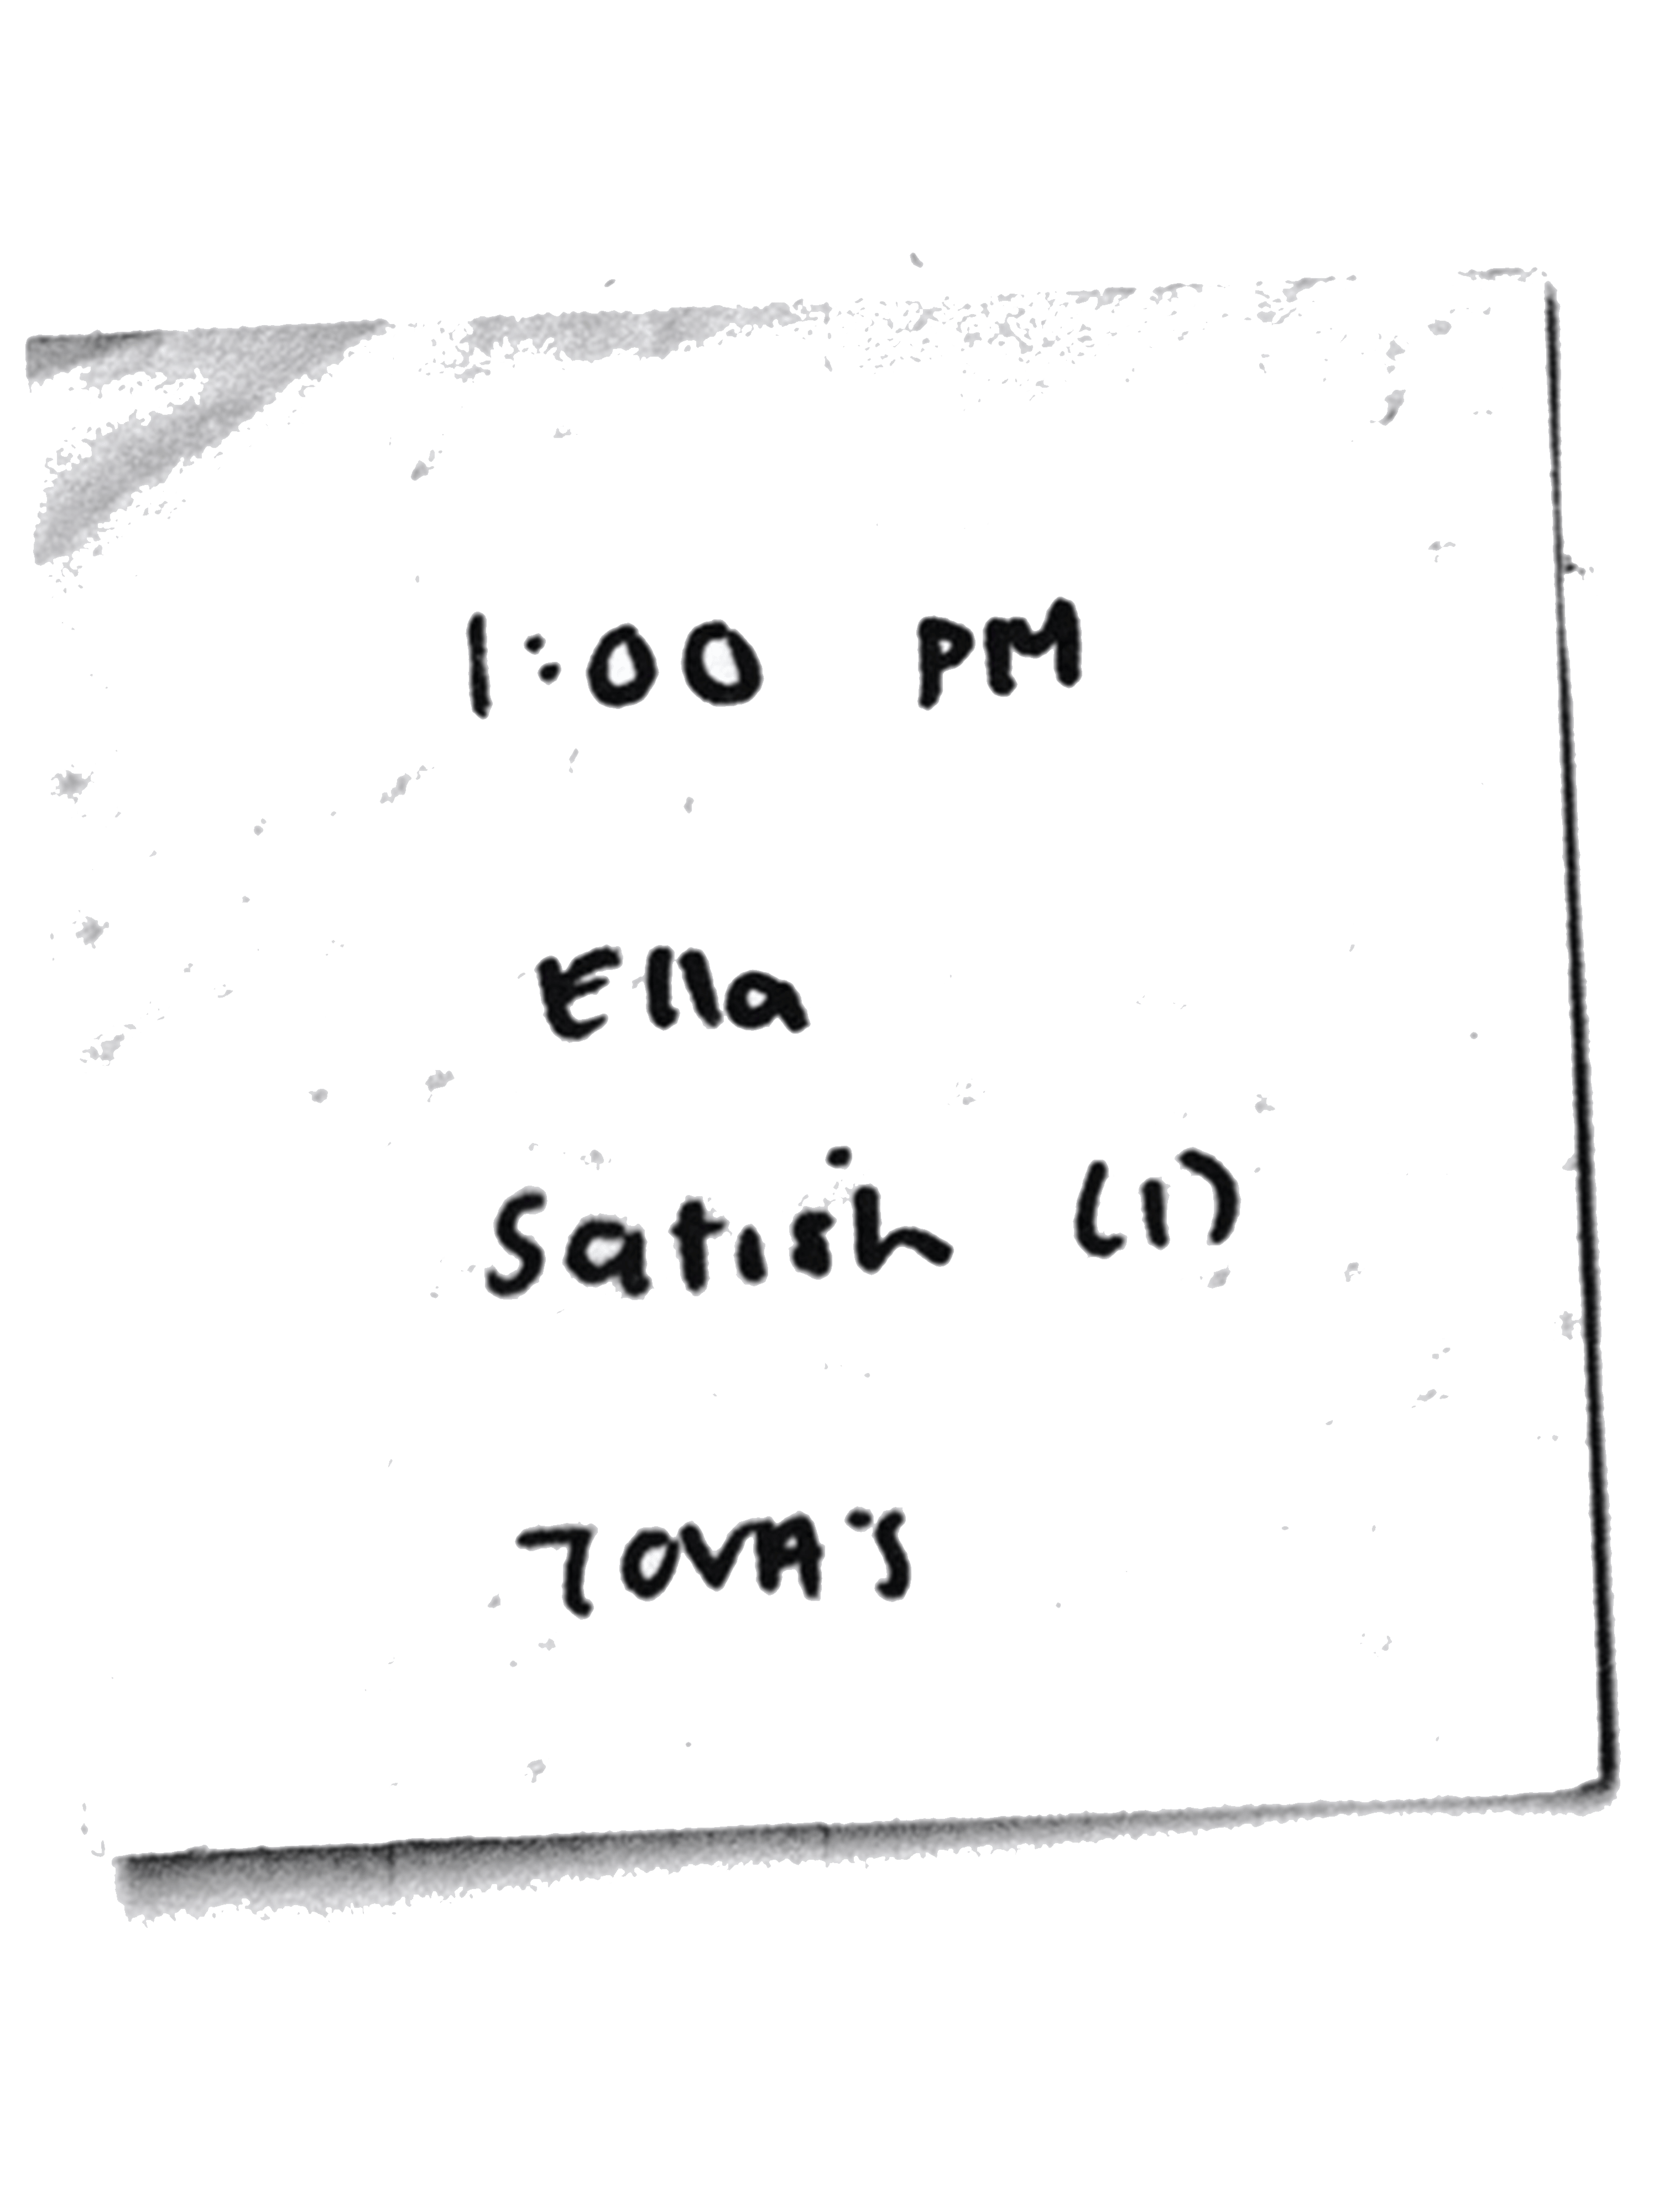 1:00 PM
Ella
Satish (1)
TOVA'S